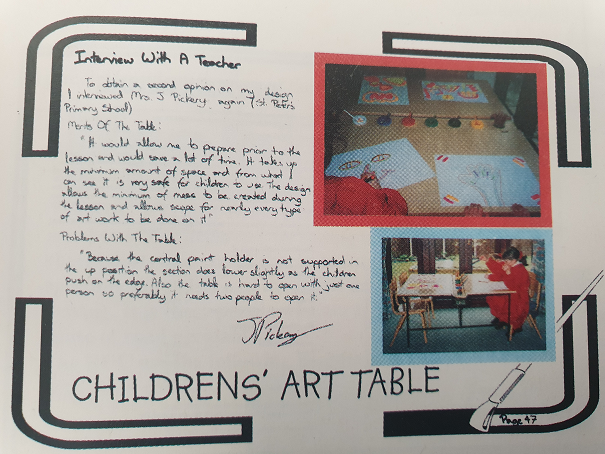 Interview With A Teacher
To obtain a second opinion on my design
I interviewed Mrs. J. Pickery again (St. Peters
Primary School)
Merits Of The Table:
"It would allow me to prepare prior to the
lesson and would save a lot of time. It takes up
the minimum amount of space and from what I
can see it is very safe for children to use. The design
allows the minimum of mess to be created during
the lesson and allows scope for nearly every type
of art work to be done on it"
Problems With The Table:
"Because the central paint holder is not supported in
the up position the section does lower slightly as the children
push on the edge. Also the table is hard to open with just one
person so preferably it needs two people to open it."
CHILDRENS' ART TABLE
Page 47